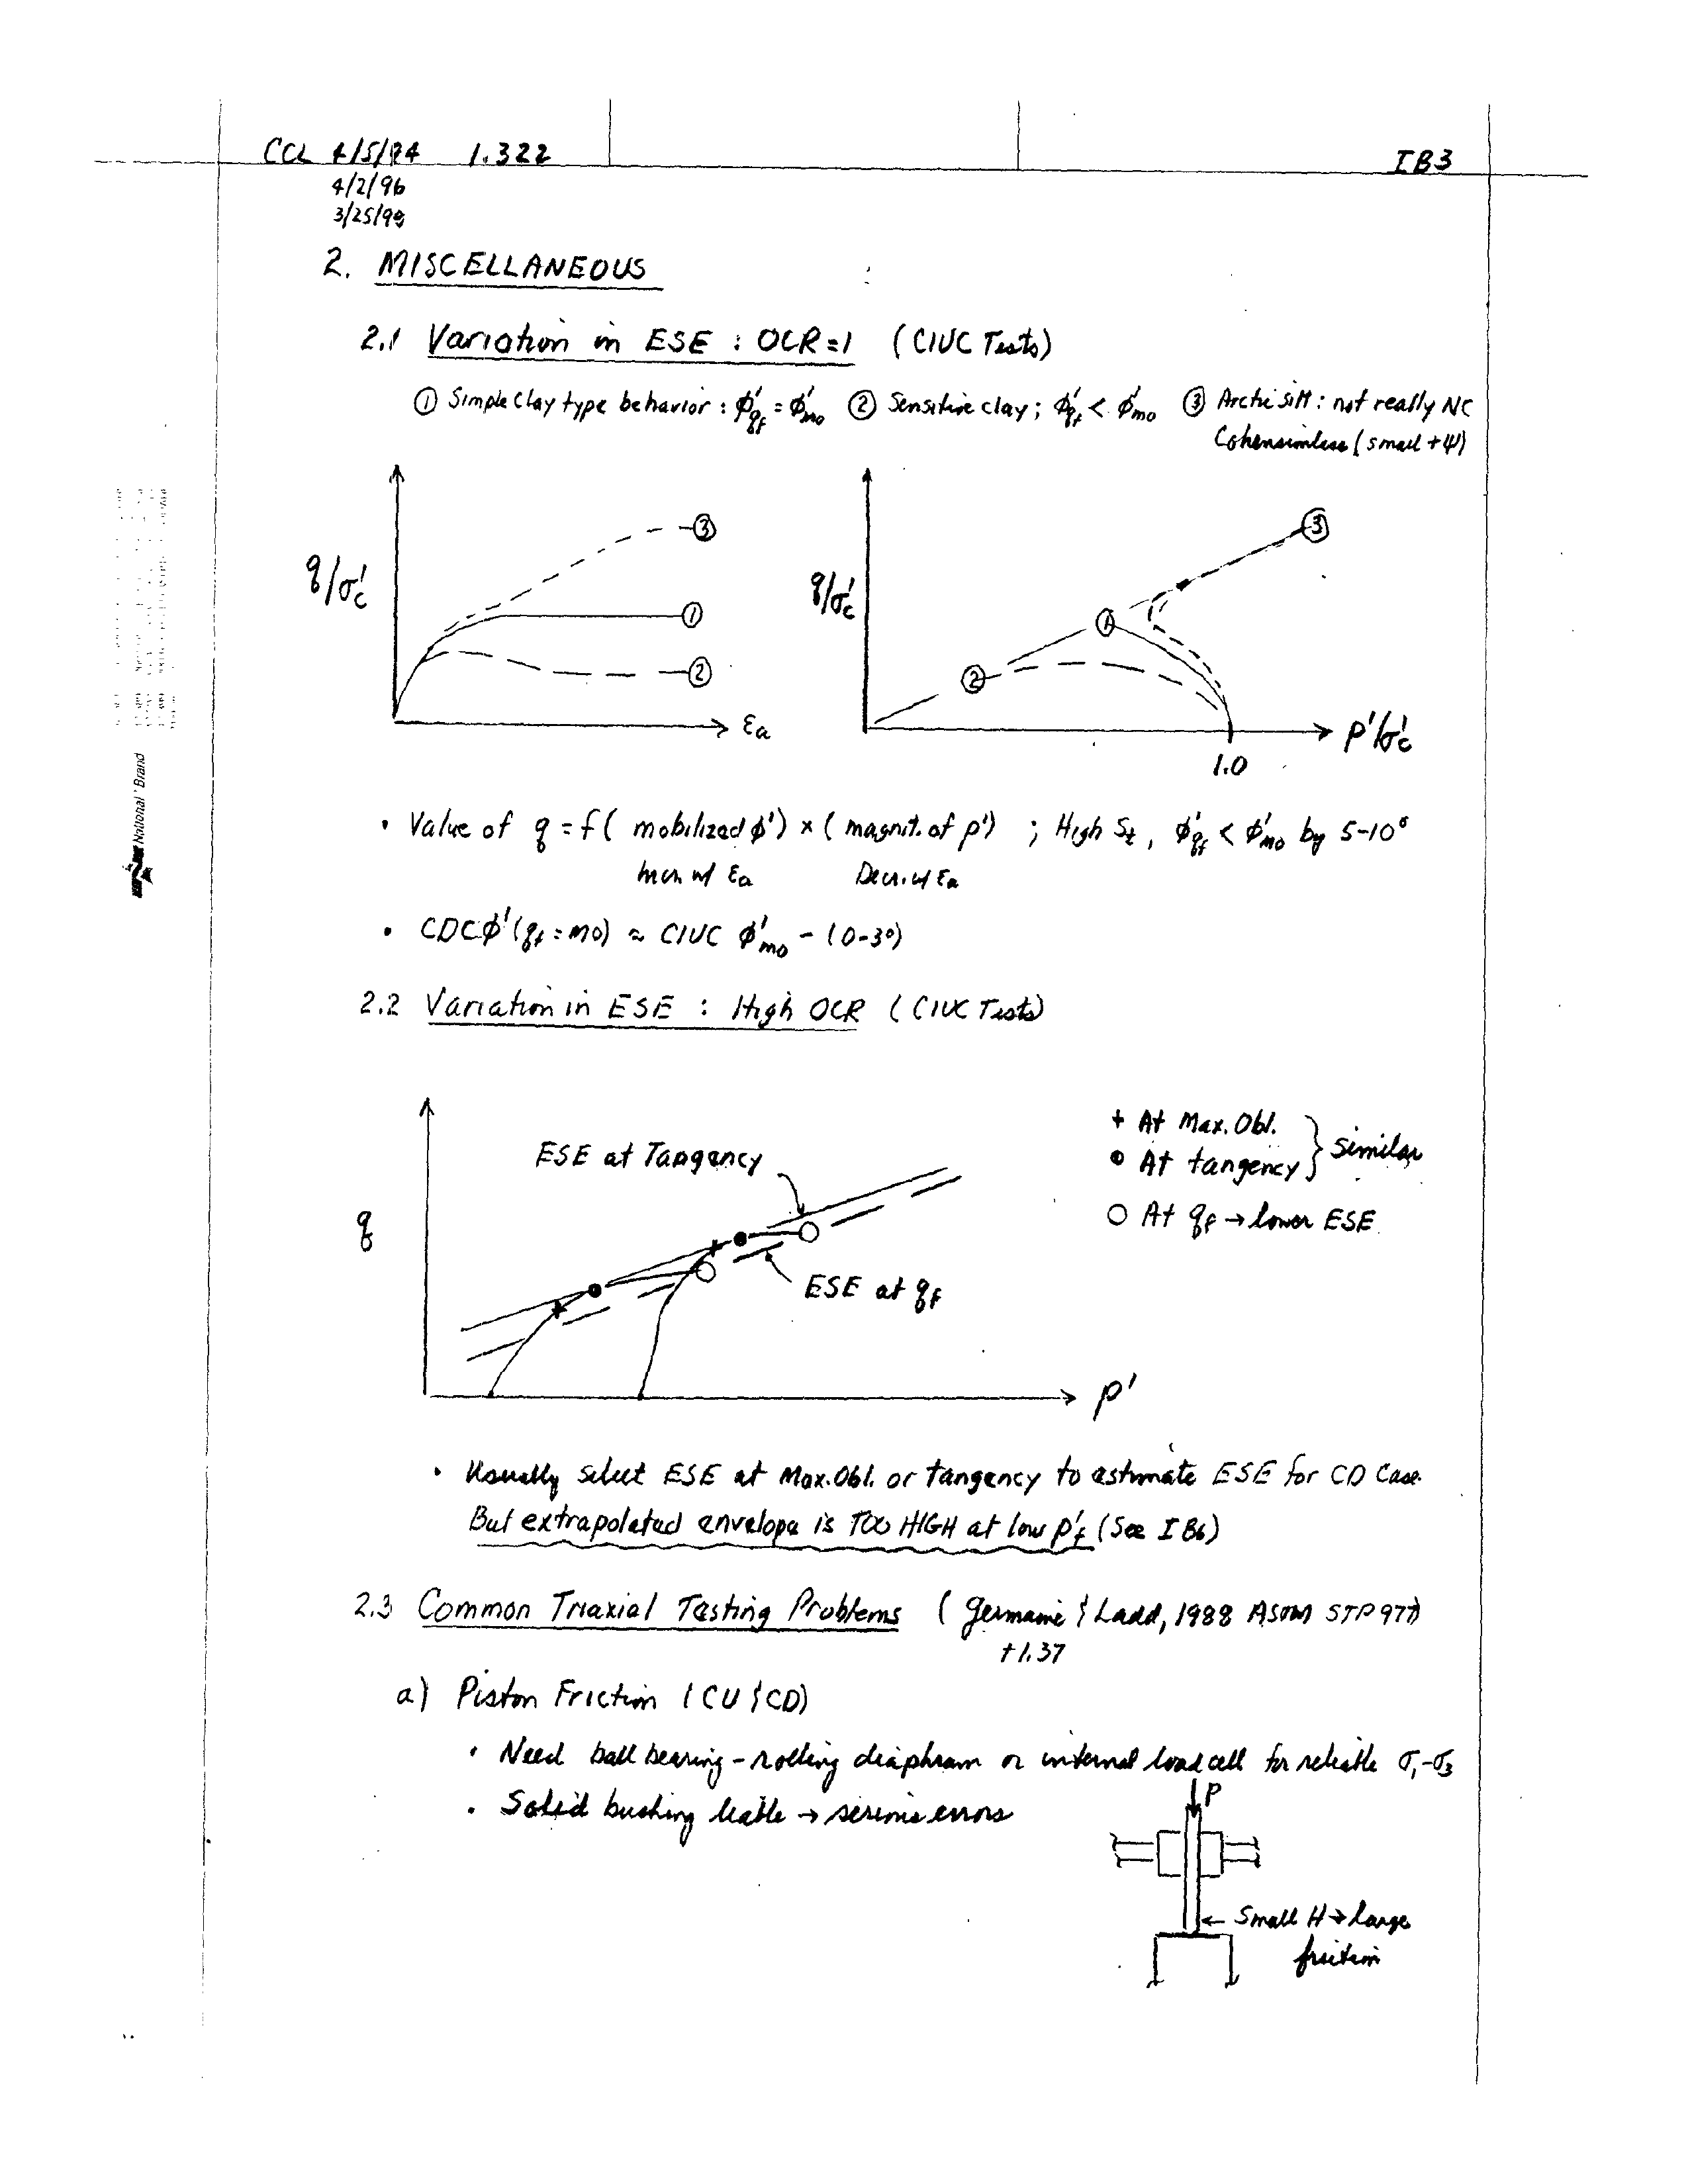 CCL 4/5/94 1.322 IB3
4/2/96
3/25/99
2. MISCELLANEOUS
2.1 Variation in ESE : OCR=1 (CIUC Tests)
① Simple clay type behavior : ϕ'qf = ϕ'mo ② Sensitive clay; ϕ'qf < ϕ'mo ③ Arctic silt : not really NC
Cohesionless (small + ψ)
③
③
q/σ'c
q/σ'c
①
①
②
②
εa
p'/σ'c
1.0
• Value of q = f( mobilized ϕ') × ( magnit. of p') ; High St, ϕ'qf < ϕ'mo by 5-10°
Incr. w/ εa Decr. w/ εa
• CDC ϕ' (qf = mo) ≈ CIUC ϕ'mo - (0-3°)
2.2 Variation in ESE : High OCR (CIUC Tests)
+ At Max. Obl.
ESE at Tangency
• At tangency } similar
q
○ At qf → lower ESE
ESE at qf
p'
• Usually select ESE at Max. Obl. or tangency to estimate ESE for CD Case.
But extrapolated envelope is TOO HIGH at low p'f (See IB6)
2.3 Common Triaxial Testing Problems (Germaine & Ladd, 1988 ASTM STP 977)
+1.37
a) Piston Friction (CU & CD)
• Need ball bearing - rolling diaphram or internal load cell for reliable σ1-σ3
• Solid bushing leads → serious errors
P
← Small H → large
friction
National Brand